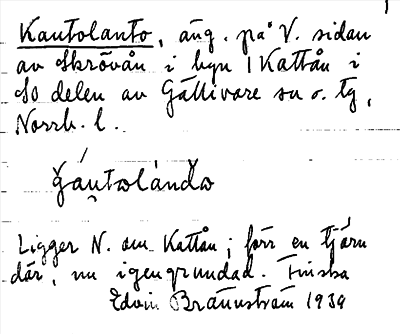 Kautolanto, äng. på V. sidan
av Skrövån i byn 1 Kattån i
SO delen av Gällivare sn o. tg,
Norrb. l.
Ligger N. om Kattån; förr en tjärn
där, nu igengrundad. Finska
Edvin Brännström 1939